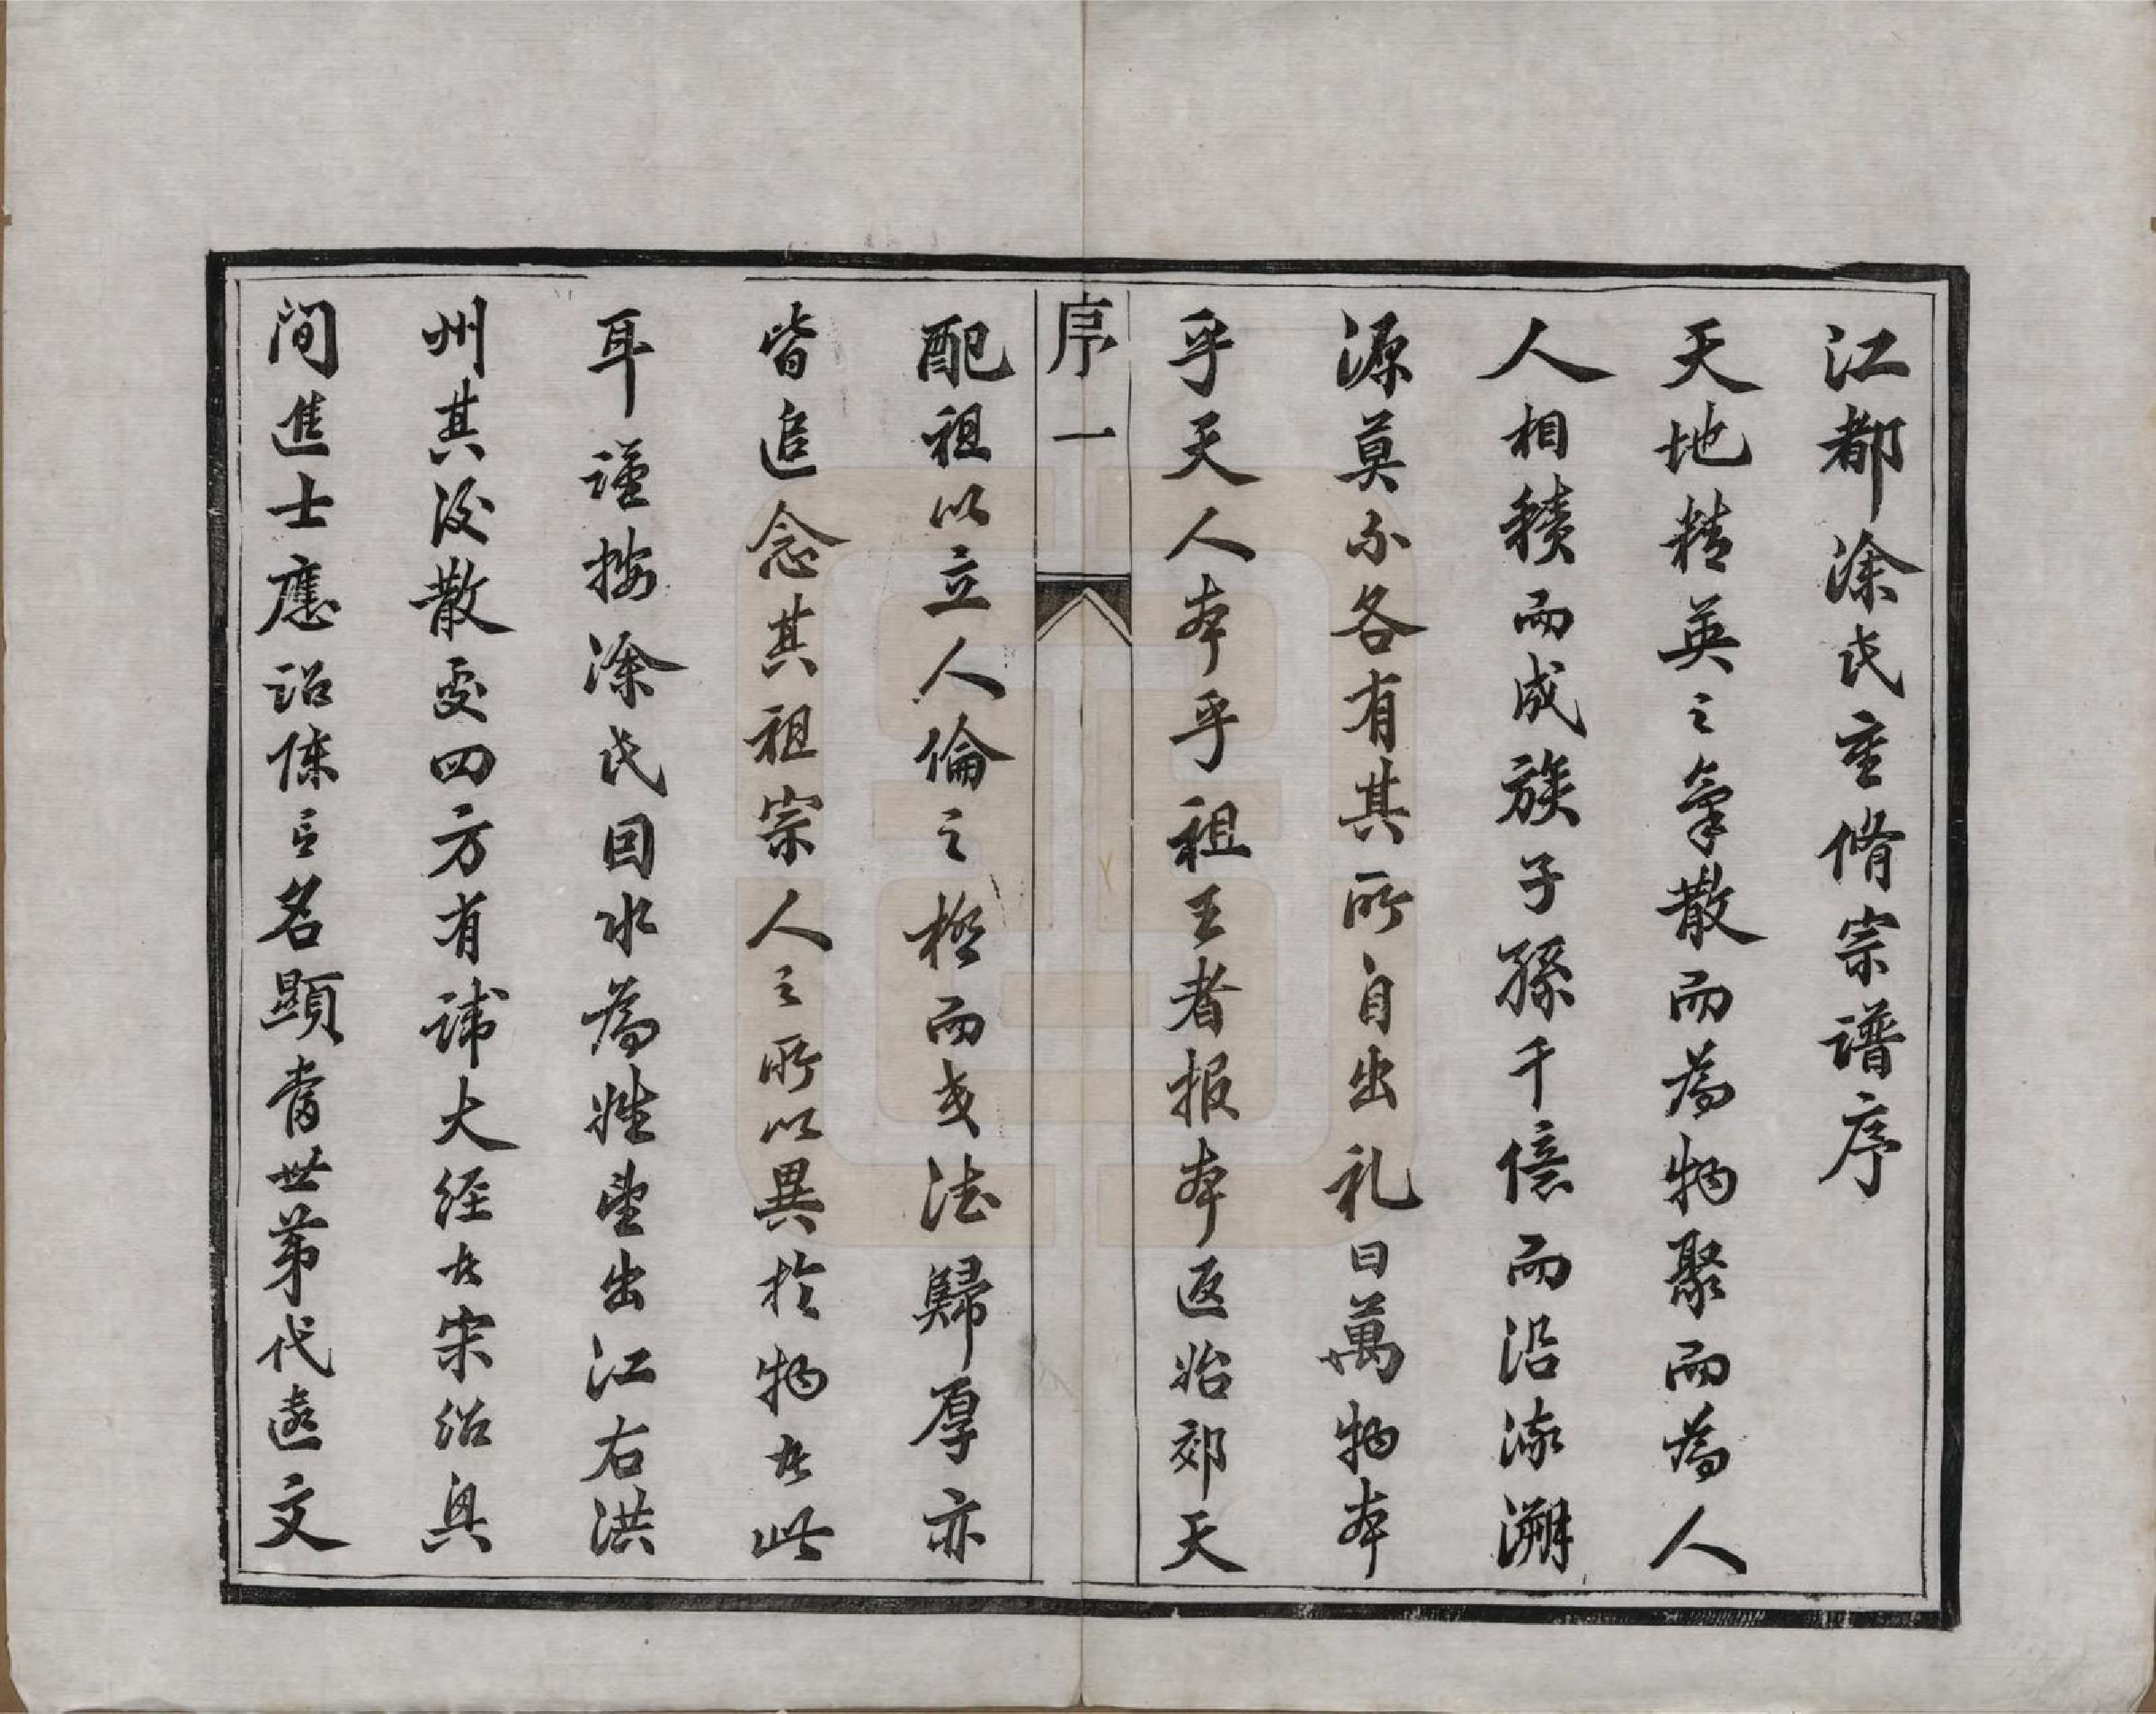 江都涂氏重脩宗譜序
天地精英之氣散而為物聚而為人
人相積而成族子孫千億而沿流溯
源莫不各有其所自出礼曰萬物本
乎天人本乎祖王者报本返始郊天
序一
配祖以立人倫之極而民德歸厚亦
皆追念其祖宗人之所以異於物者此
耳謹按涂氏因水為姓望出江右洪
州其後散處四方有諱大經者宋紹興
間進士應詔陳言名顯當世第代遠文